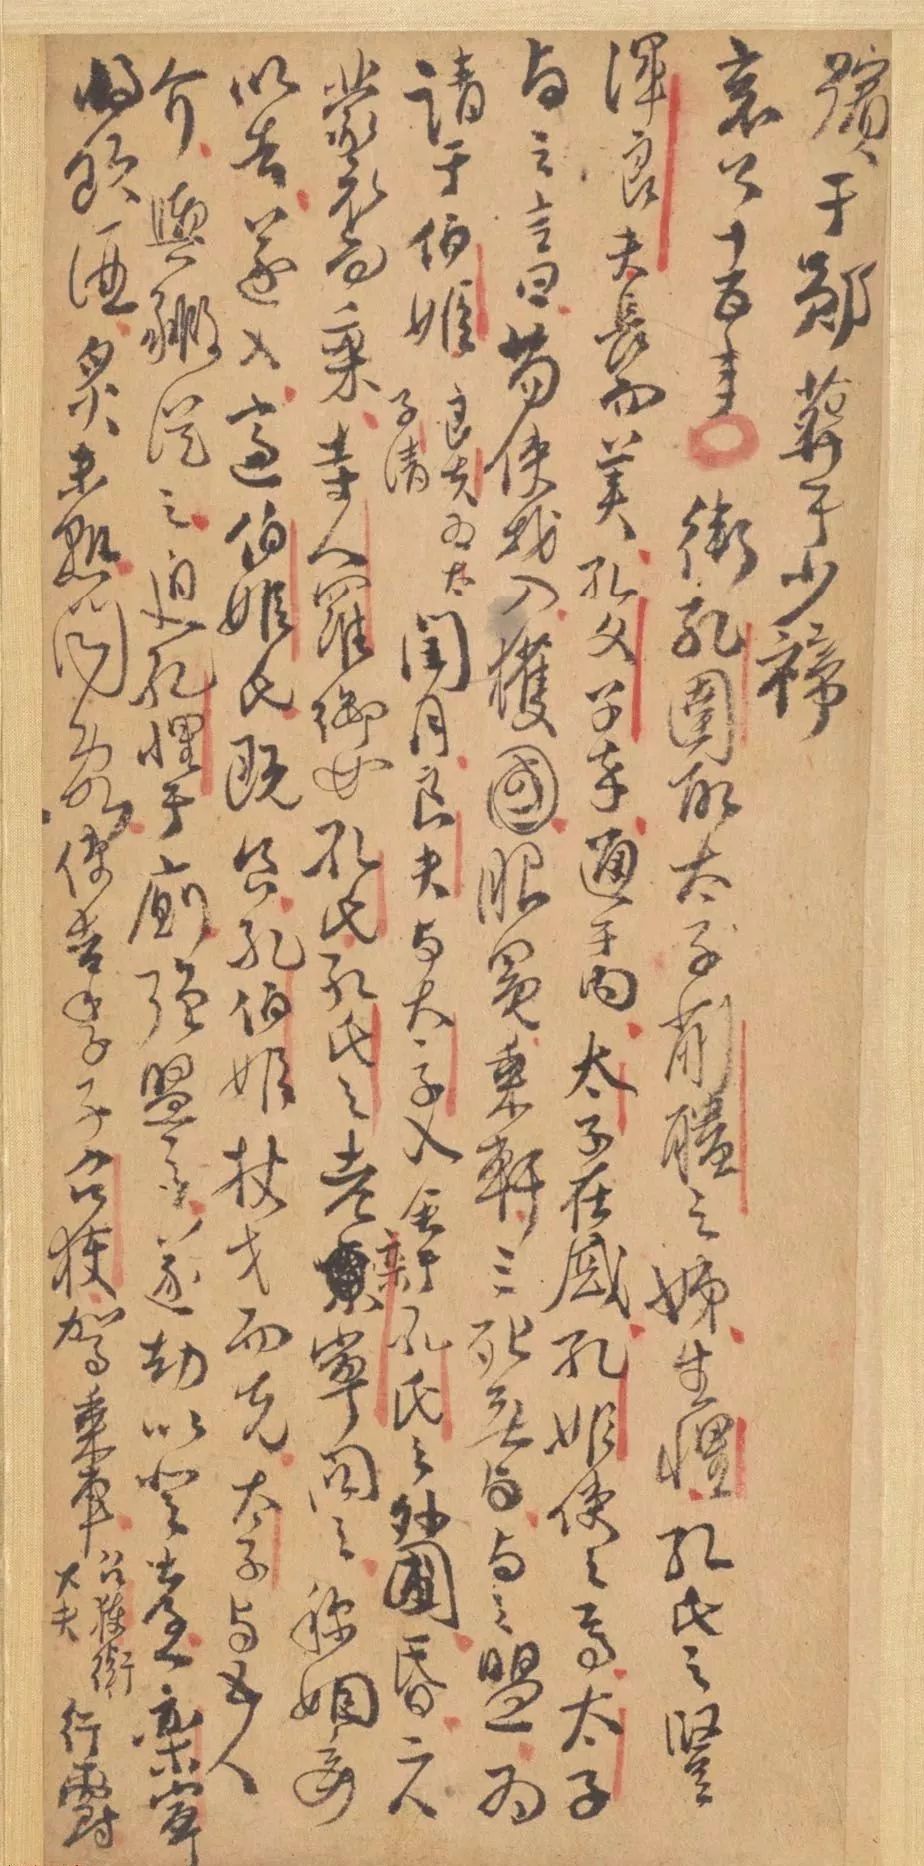 殯于鄖葬于少禘
哀公十五年 ○ 衛孔圉取太子蒯聵之姊生悝孔氏之竪
渾良夫長而美孔文子卒通于内太子在戚孔姬使之焉太子
与之言曰苟使我入獲國服冕乗軒三死無与与之盟为
請于伯姬 良夫为太子請 閏月良夫与太子入舍于孔氏之外圃昏二人
蒙衣而乗寺人羅御如孔氏孔氏之老欒寧問之称姻妾
以告遂入適伯姬氏既食孔伯姬杖戈而先太子与五人
介輿豭從之迫孔悝于廁強盟之遂劫以登臺欒寧
将飲酒炙未熟聞乱使告季子召獲駕乗車 召獲衛大夫 行爵